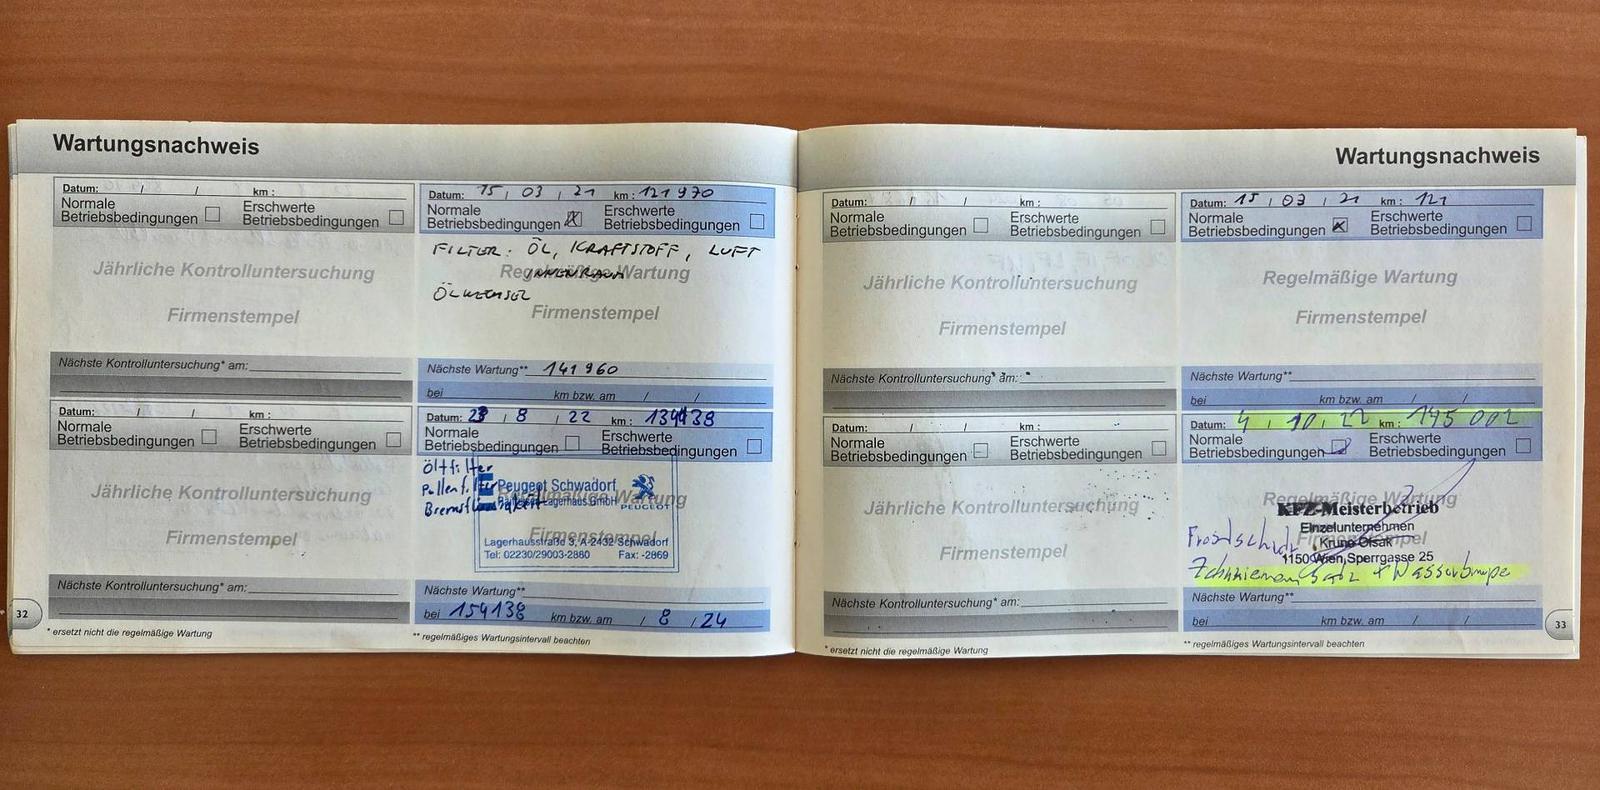 Wartungsnachweis
Datum: / / km :
Normale Betriebsbedingungen Erschwerte Betriebsbedingungen
Jährliche Kontrolluntersuchung
Firmenstempel
Nächste Kontrolluntersuchung* am:
Datum: 15 / 03 / 21 km : 121970
Normale Betriebsbedingungen Erschwerte Betriebsbedingungen
FILTER: ÖL, KRAFTSTOFF, LUFT
INNENRAUM
Regelmäßige Wartung
ÖLWECHSEL
Firmenstempel
Nächste Wartung** 141960
bei km bzw. am / /
Datum: / / km :
Normale Betriebsbedingungen Erschwerte Betriebsbedingungen
Jährliche Kontrolluntersuchung
Firmenstempel
Nächste Kontrolluntersuchung* am:
Datum: / 8 / 22 km :
Normale Betriebsbedingungen Erschwerte Betriebsbedingungen
Ölfilter
Pollenfilter
Peugeot Schwadorf
Regelmäßige Wartung
Lagerhaus GmbH
PEUGEOT
Firmenstempel
Lagerhausstraße 3, A-2432 Schwadorf
Tel: 02230/29003-2880 Fax: -2869
Nächste Wartung**
bei 154138 km bzw. am / 8 / 24
32
* ersetzt nicht die regelmäßige Wartung
** regelmäßiges Wartungsintervall beachten
Wartungsnachweis
Datum: / / km :
Normale Betriebsbedingungen Erschwerte Betriebsbedingungen
Jährliche Kontrolluntersuchung
Firmenstempel
Nächste Kontrolluntersuchung* am:
Datum: 15 / 03 / 21 km : 121
Normale Betriebsbedingungen Erschwerte Betriebsbedingungen
Regelmäßige Wartung
Firmenstempel
Nächste Wartung**
bei km bzw. am / /
Datum: / / km :
Normale Betriebsbedingungen Erschwerte Betriebsbedingungen
Jährliche Kontrolluntersuchung
Firmenstempel
Nächste Kontrolluntersuchung* am:
Datum: 4 / 10 / 22 km : 145 002
Normale Betriebsbedingungen Erschwerte Betriebsbedingungen
Regelmäßige Wartung
KFZ-Meisterbetrieb
Einzelunternehmen
Firmenstempel
Krune Olsak
1150 Wien, Sperrgasse 25
Nächste Wartung**
bei km bzw. am / /
33
* ersetzt nicht die regelmäßige Wartung
** regelmäßiges Wartungsintervall beachten